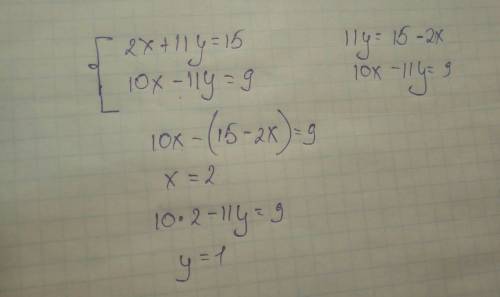 2x+11y=15
10x-11y=9
11y=15-2x
10x-11y=9
10x-(15-2x)=9
x=2
10·2-11y=9
y=1